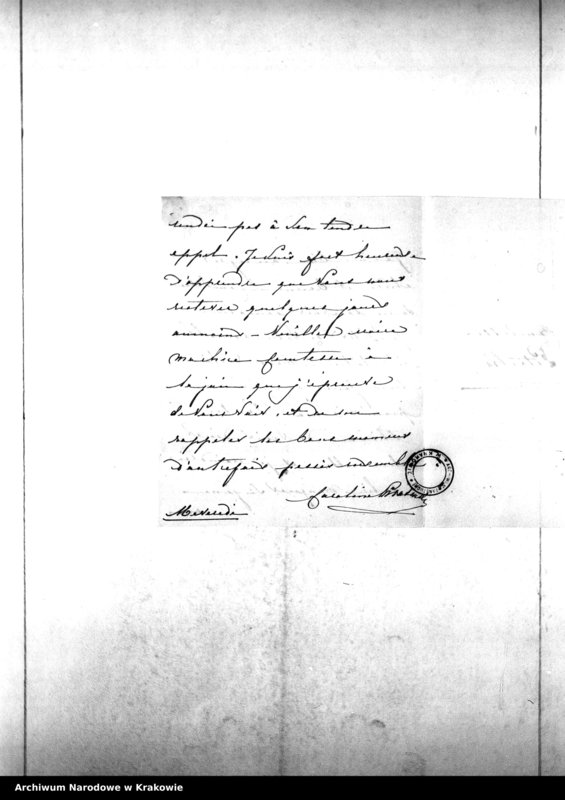 rendre pas à son tendre
appel. Je suis fort heureuse
d'apprendre que vous nous
resterez quelques jours
aumoins – Veuillez croire
ma chère Comtesse à
la joie que j'éprouve
de vous voir, et de me
rappeler les bons moments
d'autrefois passés ensemble
Caroline
Mercredi
Archiwum Narodowe w Krakowie